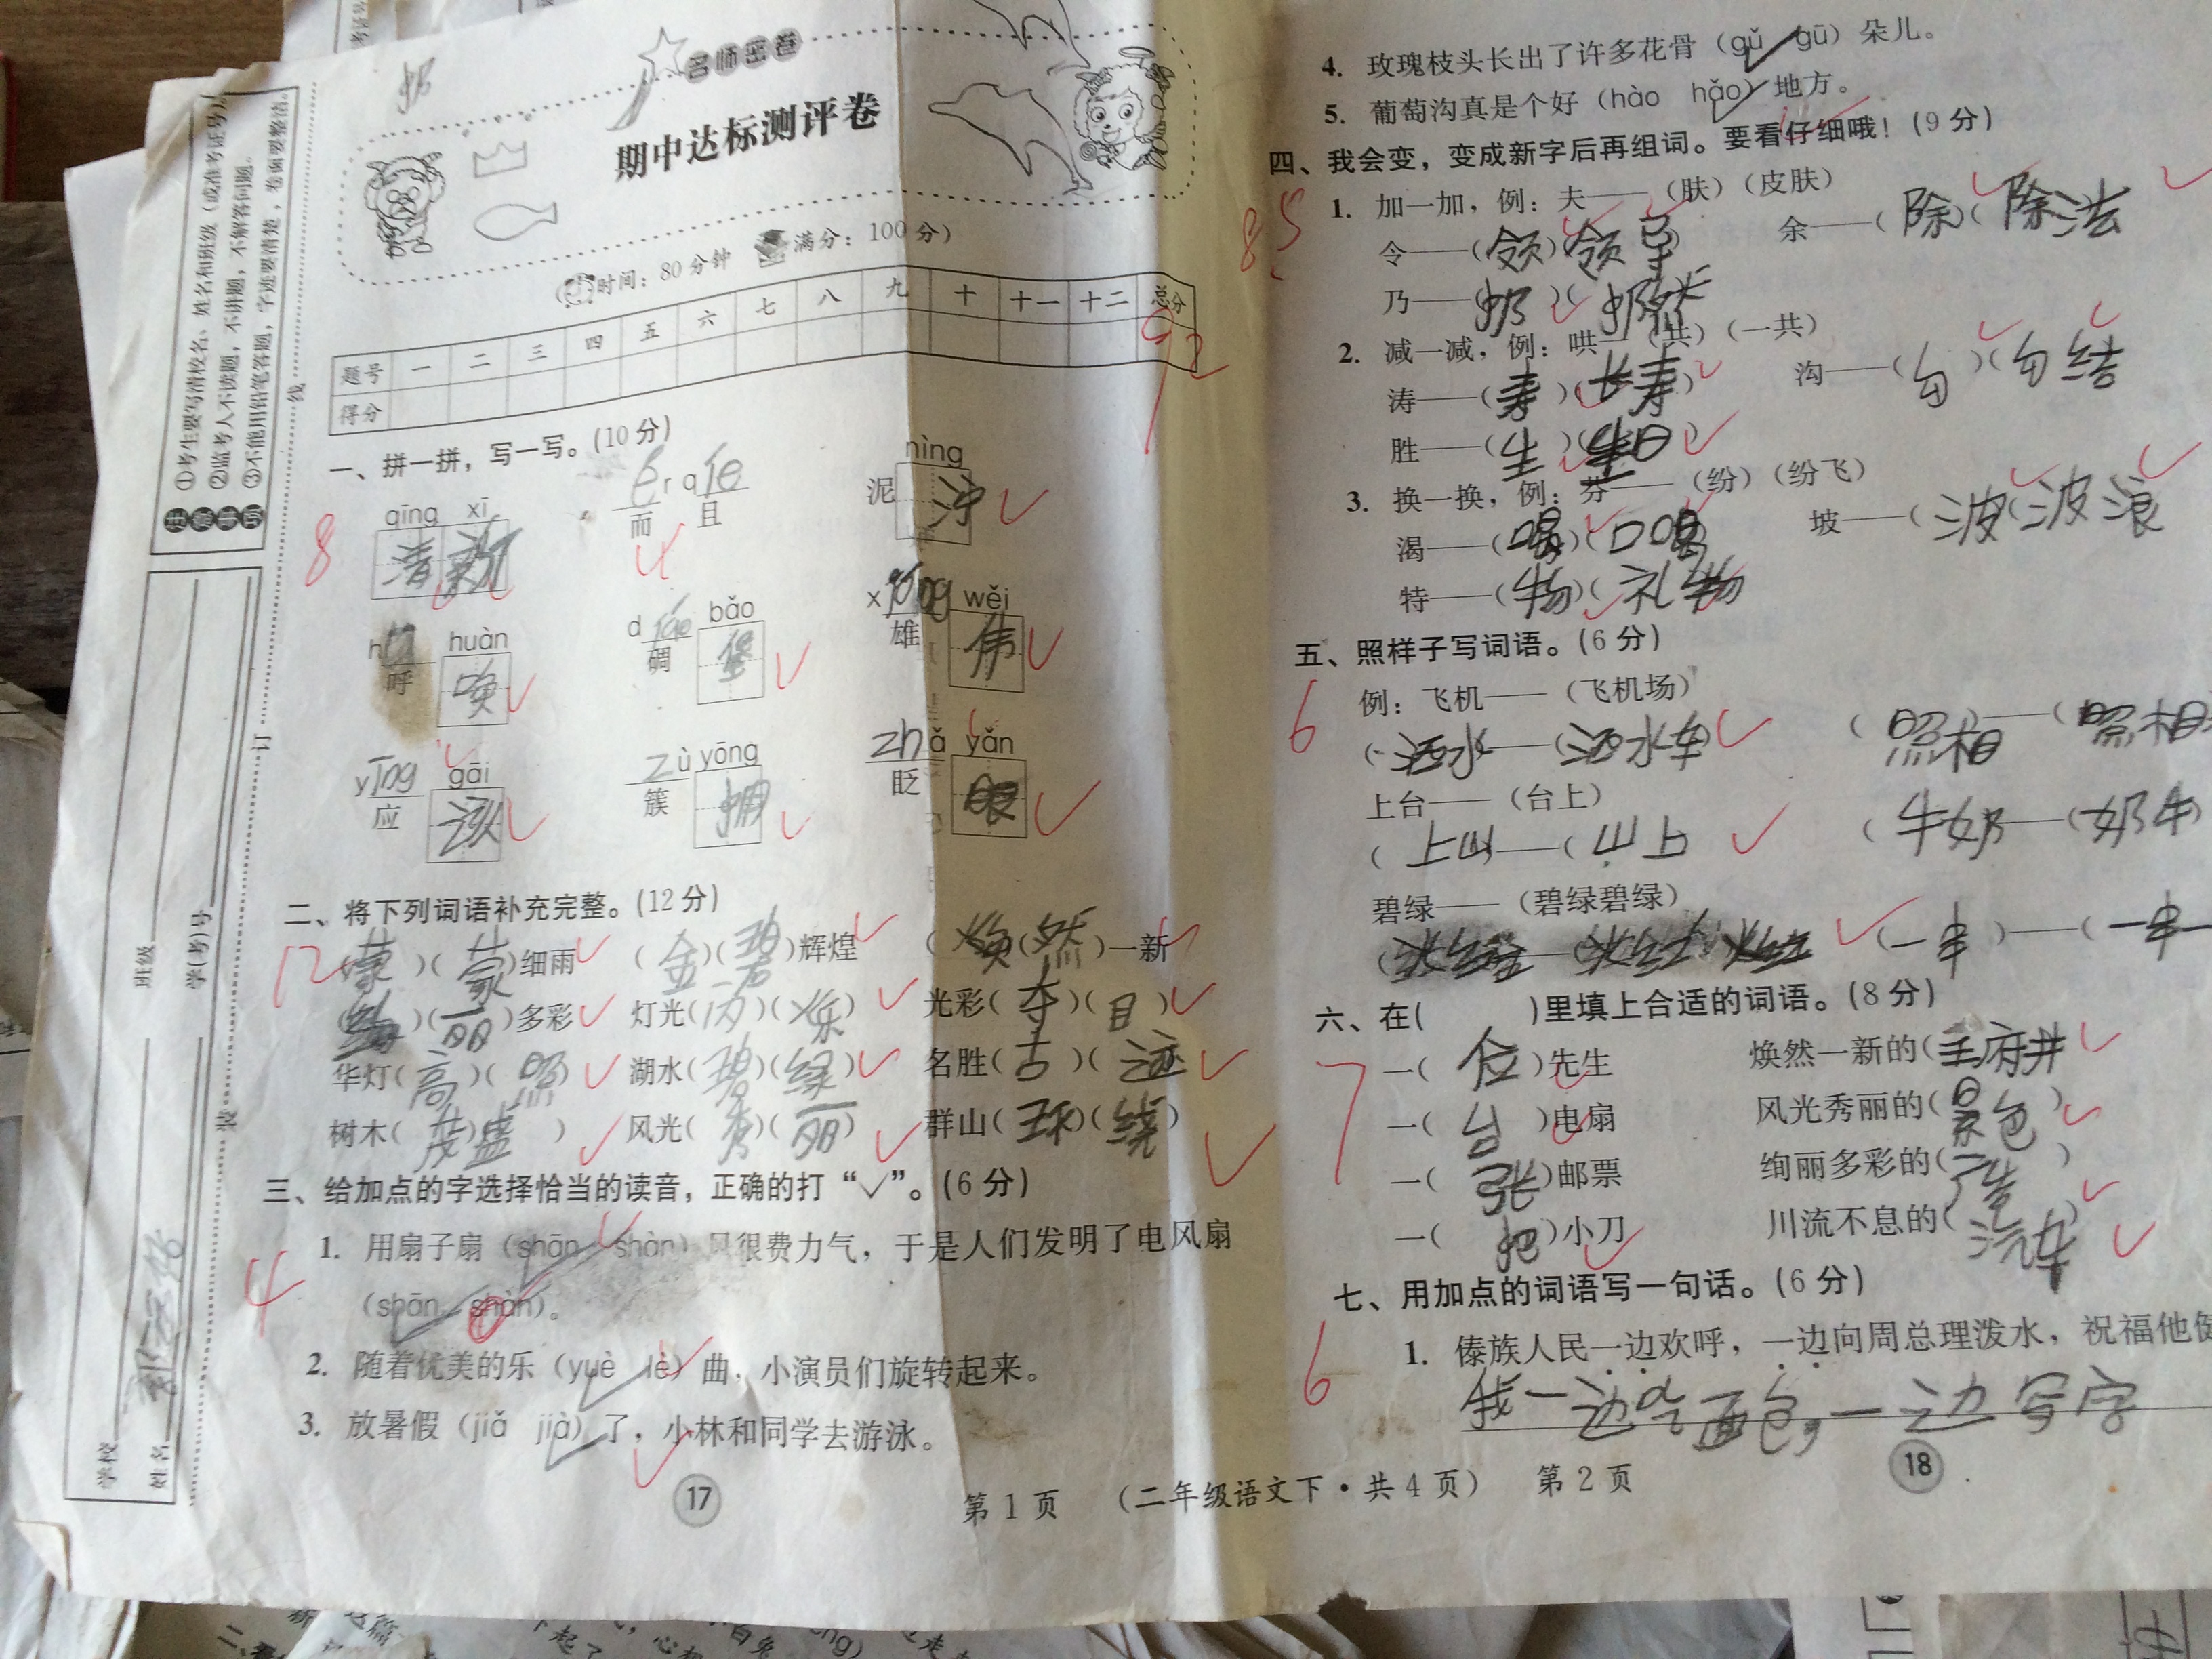 名师密卷
期中达标测评卷
(时间：80分钟 满分：100分)
题号 一 二 三 四 五 六 七 八 九 十 十一 十二 总分
得分
92
①考生要写清校名、姓名和班级（或准考证号）。
②监考人不读题，不讲题，不解答问题。
③不能用铅笔答题，字迹要清楚，卷面要整洁。
班级
学(考)号
学校
姓名
装 订 线
奶
一、拼一拼，写一写。(10分)
8
qīng xī ér qiě nìng
清新 而 且 泥泞
hū huàn diāo bǎo xióng wěi
呼唤 碉堡 雄伟
yīng gāi cù yōng zhǎ yǎn
应该 簇拥 眨眼
二、将下列词语补充完整。(12分)
12
(蒙)(蒙)细雨 (金)(碧)辉煌 (焕)(然)一新
(绚)(丽)多彩 灯光(闪)(烁) 光彩(夺)(目)
华灯(高)(照) 湖水(碧)(绿) 名胜(古)(迹)
树木(茂)(盛) 风光(秀)(丽) 群山(环)(绕)
三、给加点的字选择恰当的读音，正确的打“✓”。(6分)
4
1. 用扇子扇（shān shàn）风很费力气，于是人们发明了电风扇
（shān shàn）。
2. 随着优美的乐（yuè lè）曲，小演员们旋转起来。
3. 放暑假（jiǎ jià）了，小林和同学去游泳。
17
第1页 （二年级语文下·共4页）
4. 玫瑰枝头长出了许多花骨（gǔ gū）朵儿。
5. 葡萄沟真是个好（hào hǎo）地方。
四、我会变，变成新字后再组词。要看仔细哦！(9分)
8.5
1. 加一加，例：夫——（肤）（皮肤）
令——(领)(领导) 余——(除)(除法
乃——(奶)(奶
2. 减一减，例：哄—（共）（一共）
涛——(寿)(长寿) 沟——(勾)(勾结
胜——(生)(生日)
3. 换一换，例：芬——（纷）（纷飞）
渴——(喝)(口喝 坡——(波)(波浪
特——(物)(礼物
五、照样子写词语。(6分)
6
例：飞机——（飞机场）
(洒水——(洒水车 (照相)——(照相
上台——（台上）
(上山——(山上 (牛奶——(奶牛)
碧绿——（碧绿碧绿）
(火红——(火红火红 (一串)——(一串一
六、在( )里填上合适的词语。(8分)
7
一(位)先生 焕然一新的(王府井
一(台)电扇 风光秀丽的(景色)
一(张)邮票 绚丽多彩的( )
一(把)小刀 川流不息的(汽车)
七、用加点的词语写一句话。(6分)
6
1. 傣族人民一边欢呼，一边向周总理泼水，祝福他健
我一边吃面包，一边写字
第2页 18